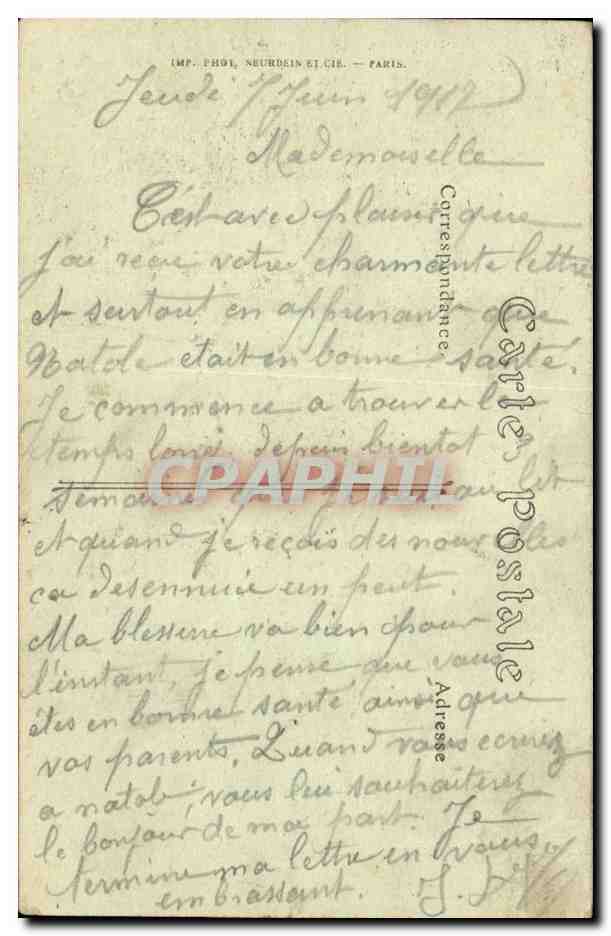 IMP. PHOT. NEURDEIN ET CIE. — PARIS.
Jeudi 7 Juin 1917
Mademoiselle
C'est avec plaisir que
j'ai reçu votre charmante lettre
et surtout en apprenant que
Natole était en bonne santé.
Je commence a trouver le
temps long depuis bientot 3
semaines que je suis au lit
et quand je reçois des nouvelles
ca desennuie un peut.
Ma blessure va bien pour
l'instant, je pense que vous
êtes en bonne santé ainsi que
vos parents. Quand vous ecrirez
a natole, vous lui souhaiterez
le bonjour de ma part. Je
termine ma lettre en vous
embrassant.
Correspondance
Adresse
Carte Postale
CPAPHIL